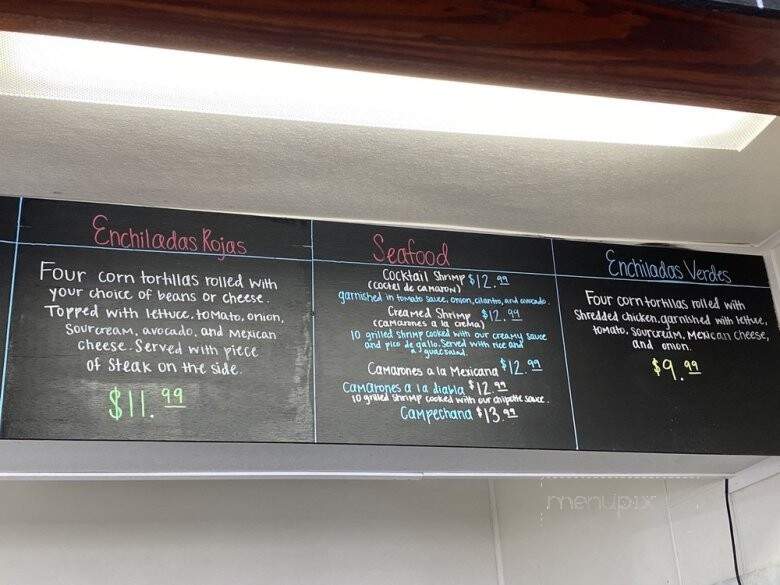 Enchiladas Rojas
Four corn tortillas rolled with
your choice of beans or cheese.
Topped with lettuce, tomato, onion,
Sourcream, avocado, and Mexican
cheese. Served with piece
of Steak on the side.
$11.99
Seafood
Cocktail Shrimp $12.99
(coctel de camaron)
garnished in tomato sauce, onion, cilantro, and avocado.
Creamed Shrimp $12.99
(camarones a la crema)
10 grilled shrimp cooked with our creamy sauce
and pico de gallo. Served with rice and
a guacsalad.
Camarones a la Mexicana $12.99
Camarones a la diabla $12.99
10 grilled shrimp cooked with our chipotle sauce.
Campechana $13.99
Enchiladas Verdes
Four corn tortillas rolled with
Shredded chicken, garnished with lettuce,
tomato, sourcream, Mexican cheese,
and onion.
$9.99
menupix